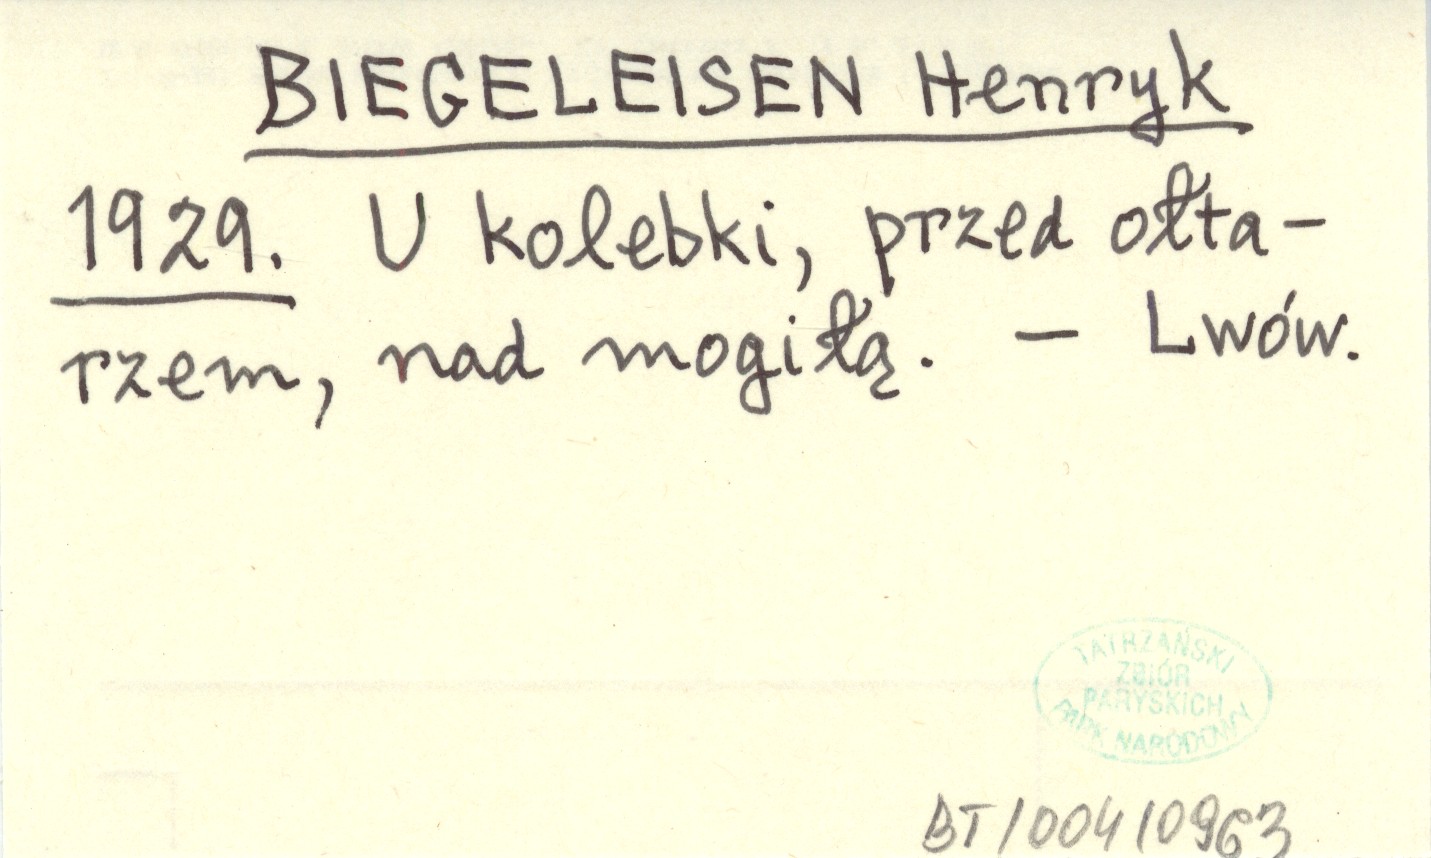 BIEGELEISEN Henryk
1929. U kolebki, przed ołta-
rzem, nad mogiłą. - Lwów.
TATRZAŃSKI
ZBIÓR
PARYSKICH
PARK NARODOWY
BT/004/0963